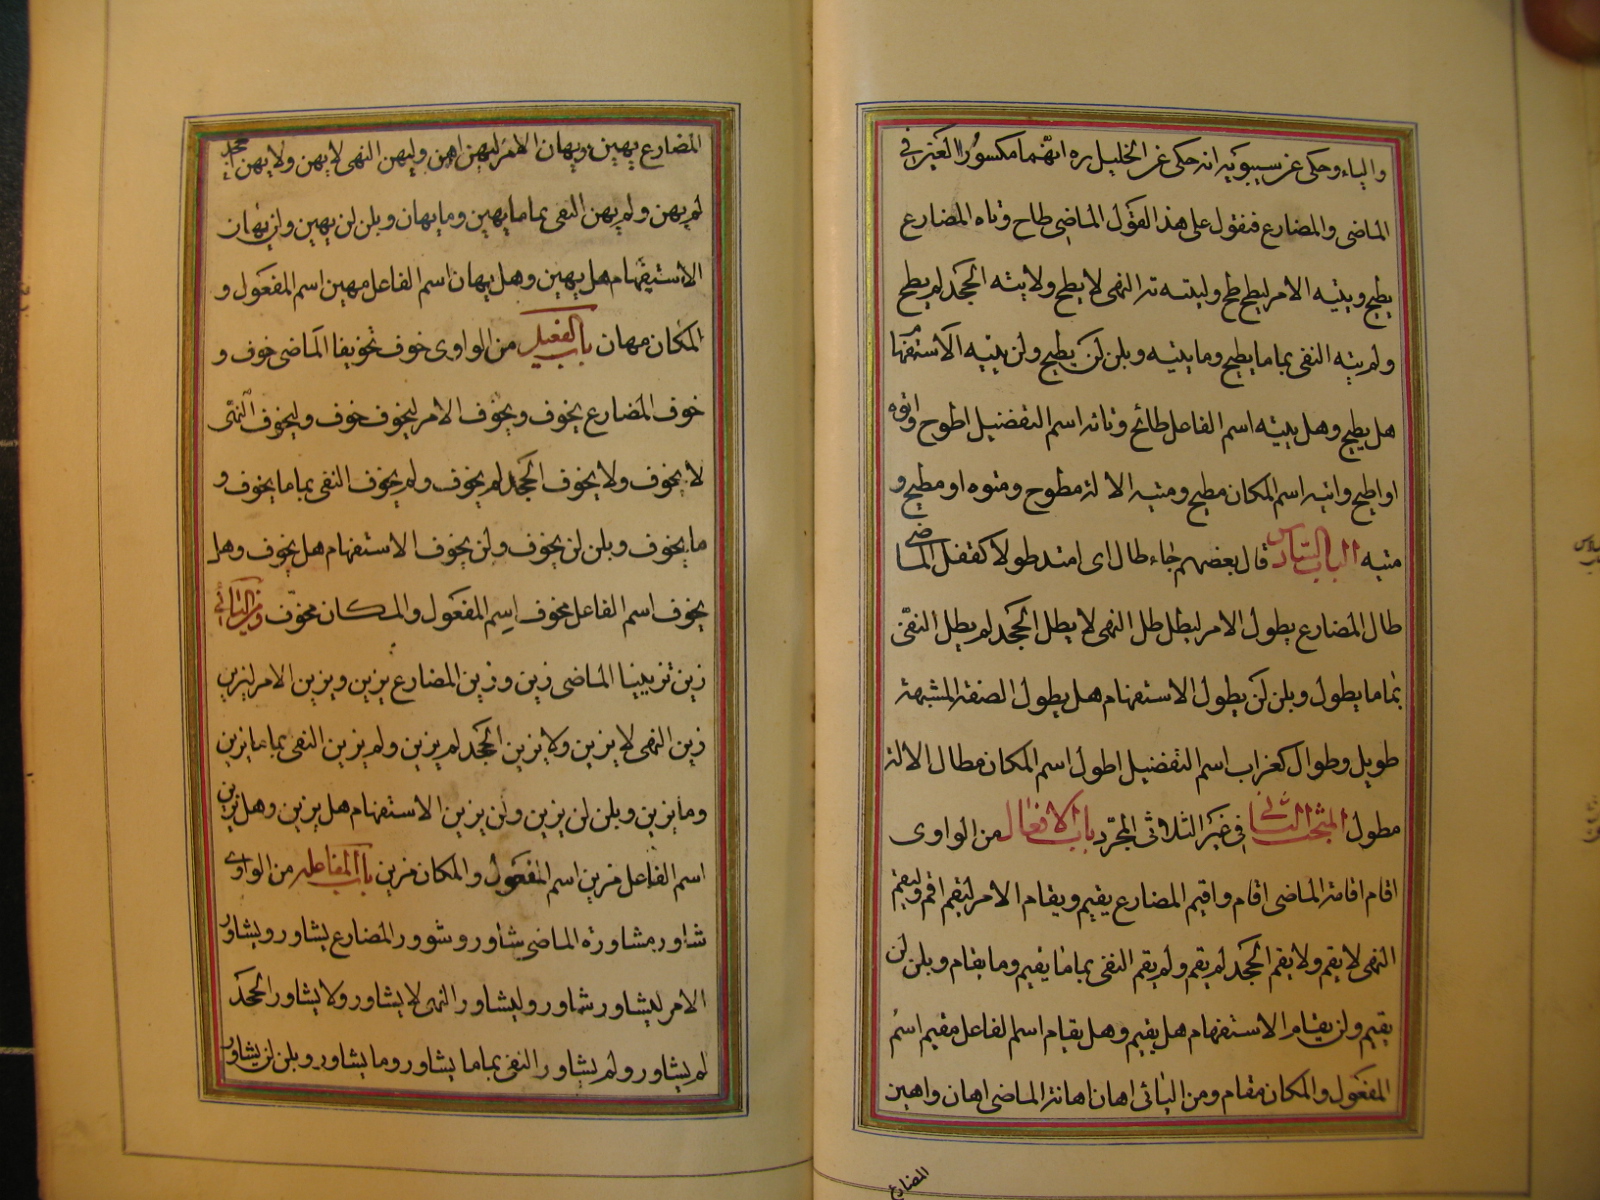 والياء وحكى عن سيبويه انه حكى عن الخليل ره انهما مكسورا العين في
الماضي والمضارع فنقول على هذا القول الماضي طاح وتاه المضارع
يطيح ويتيه الامر ليطح طح وليته ته النهي لا يطح ولا يته الجحد لم يطح
ولم يته النفي بما ما يطيح وما يتيه وبلن لن يطيح ولن يتيه الاستفهام
هل يطيح وهل يتيه اسم الفاعل طائح وتائه اسم التفضيل اطوح واتوه
او اطيح واتيه اسم المكان مطيح ومتيه الالة مطوح ومتوه او مطيح و
متيه الباب السادس قال بعضهم جاء طال اى امتد طولا كقفل الماضي
طال المضارع يطول الامر ليطل طل النهي لا يطل الجحد لم يطل النفي
بما ما يطول وبلن لن يطول الاستفهام هل يطول الصفة المشبهة
طويل وطوال كغراب اسم التفضيل اطول اسم المكان مطال الالة
مطول المبحث الثاني في غير الثلاثي المجرد باب الافعال من الواوى
اقام اقامة الماضي اقام واقيم المضارع يقيم ويقام الامر ليقم اقم وليقم
النهي لا يقم ولا يقم الجحد لم يقم ولم يقم النفي بما ما يقيم وما يقام وبلن لن
يقيم ولن يقام الاستفهام هل يقيم وهل يقام اسم الفاعل مقيم اسم
المفعول والمكان مقام ومن اليائي اهان اهانة الماضي اهان واهين
المضارع
المضارع يهين ويهان الامر ليهن اهن وليهن النهي لا يهن ولا يهن الجحد
لم يهن ولم يهن النفي بما ما يهين وما يهان وبلن لن يهين ولن يهان
الاستفهام هل يهين وهل يهان اسم الفاعل مهين اسم المفعول و
المكان مهان باب التفعيل من الواوى خوف تخويفا الماضي خوف و
خوف المضارع يخوف ويخوف الامر ليخوف خوف وليخوف النهي
لا يخوف ولا يخوف الجحد لم يخوف ولم يخوف النفي بما ما يخوف و
ما يخوف وبلن لن يخوف ولن يخوف الاستفهام هل يخوف وهل
يخوف اسم الفاعل مخوف اسم المفعول والمكان مخوّف ومن اليائي
زين تزيينا الماضي زين وزين المضارع يزين ويزين الامر ليزين
زين النهي لا يزين ولا يزين الجحد لم يزين ولم يزين النفي بما ما يزين
وما يزين وبلن لن يزين ولن يزين الاستفهام هل يزين وهل يزين
اسم الفاعل مزين اسم المفعول والمكان مزين باب المفاعلة من الواوى
شاور مشاورة الماضي شاور وشوور المضارع يشاور ويشاور
الامر ليشاور شاور وليشاور النهي لا يشاور ولا يشاور الجحد
لم يشاور ولم يشاور النفي بما ما يشاور وما يشاور وبلن لن يشاور